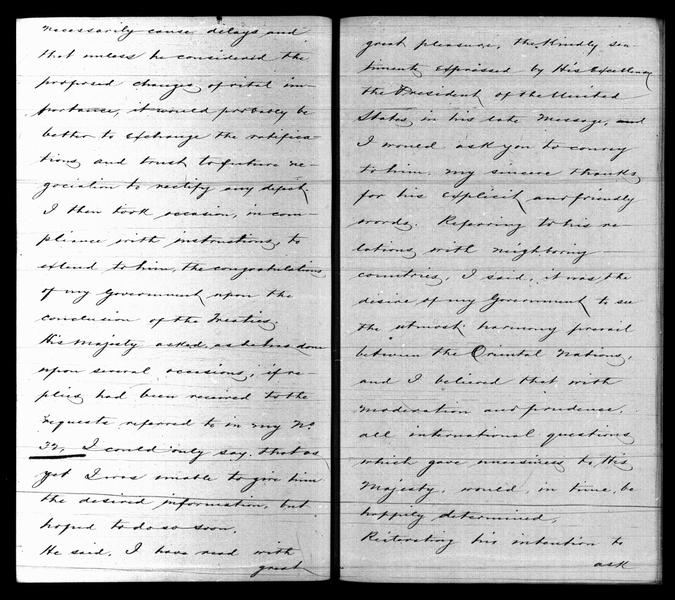 necessarily cause delays and
that unless he considered the
proposed changes of vital im-
portance, it would probably be
better to exchange the ratifica-
tions and trust to future ne-
gociation to rectify any defect.
I then took occasion, in com-
pliance with instructions, to
extend to him, the congratulations
of my Government upon the
conclusion of the Treaties.
His Majesty asked, as he has done
upon several occasions, if re-
plies had been received to the
requests referred to in my No.
32, I could only say, that as
yet I was unable to give him
the desired information, but
hoped to do so soon.
He said, I have read with
great
great pleasure, the kindly sen-
timents expressed by His Excellency
the President of the United
States in his late Message, and
I would ask you to convey
to him, my sincere thanks
for his explicit and friendly
words. Referring to his re-
lations with neighboring
countries, I said, it was the
desire of my Government to see
the utmost harmony prevail
between the Oriental Nations,
and I believed that with
moderation and prudence,
all international questions
which gave uneasiness to His
Majesty, would, in time, be
happily determined.
Reiterating his intention to
ask